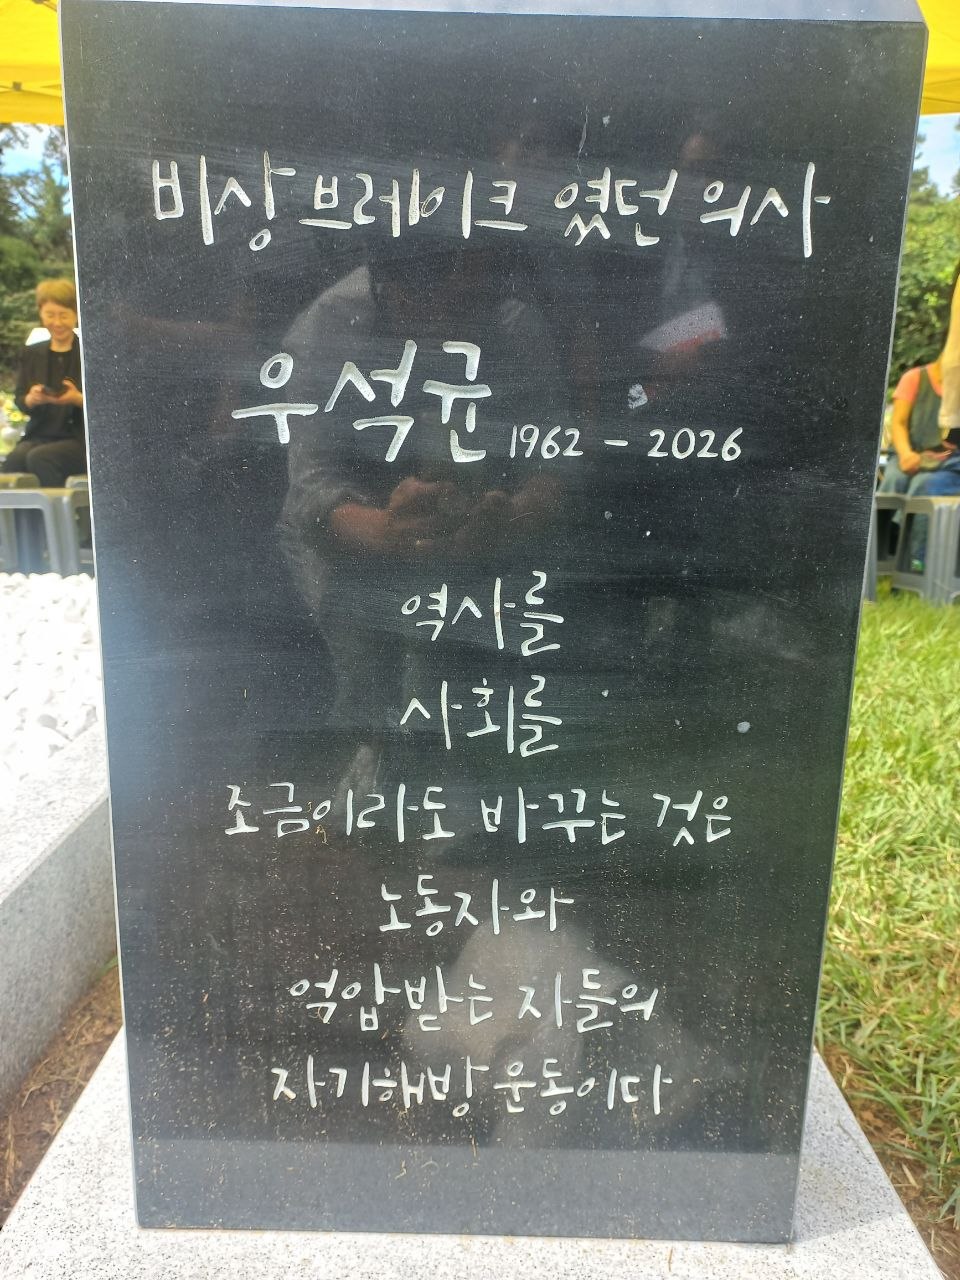 비상 브레이크 였던 의사
우석균 1962 - 2026
역사를
사회를
조금이라도 바꾸는 것은
노동자와
억압받는 자들의
자기해방 운동이다